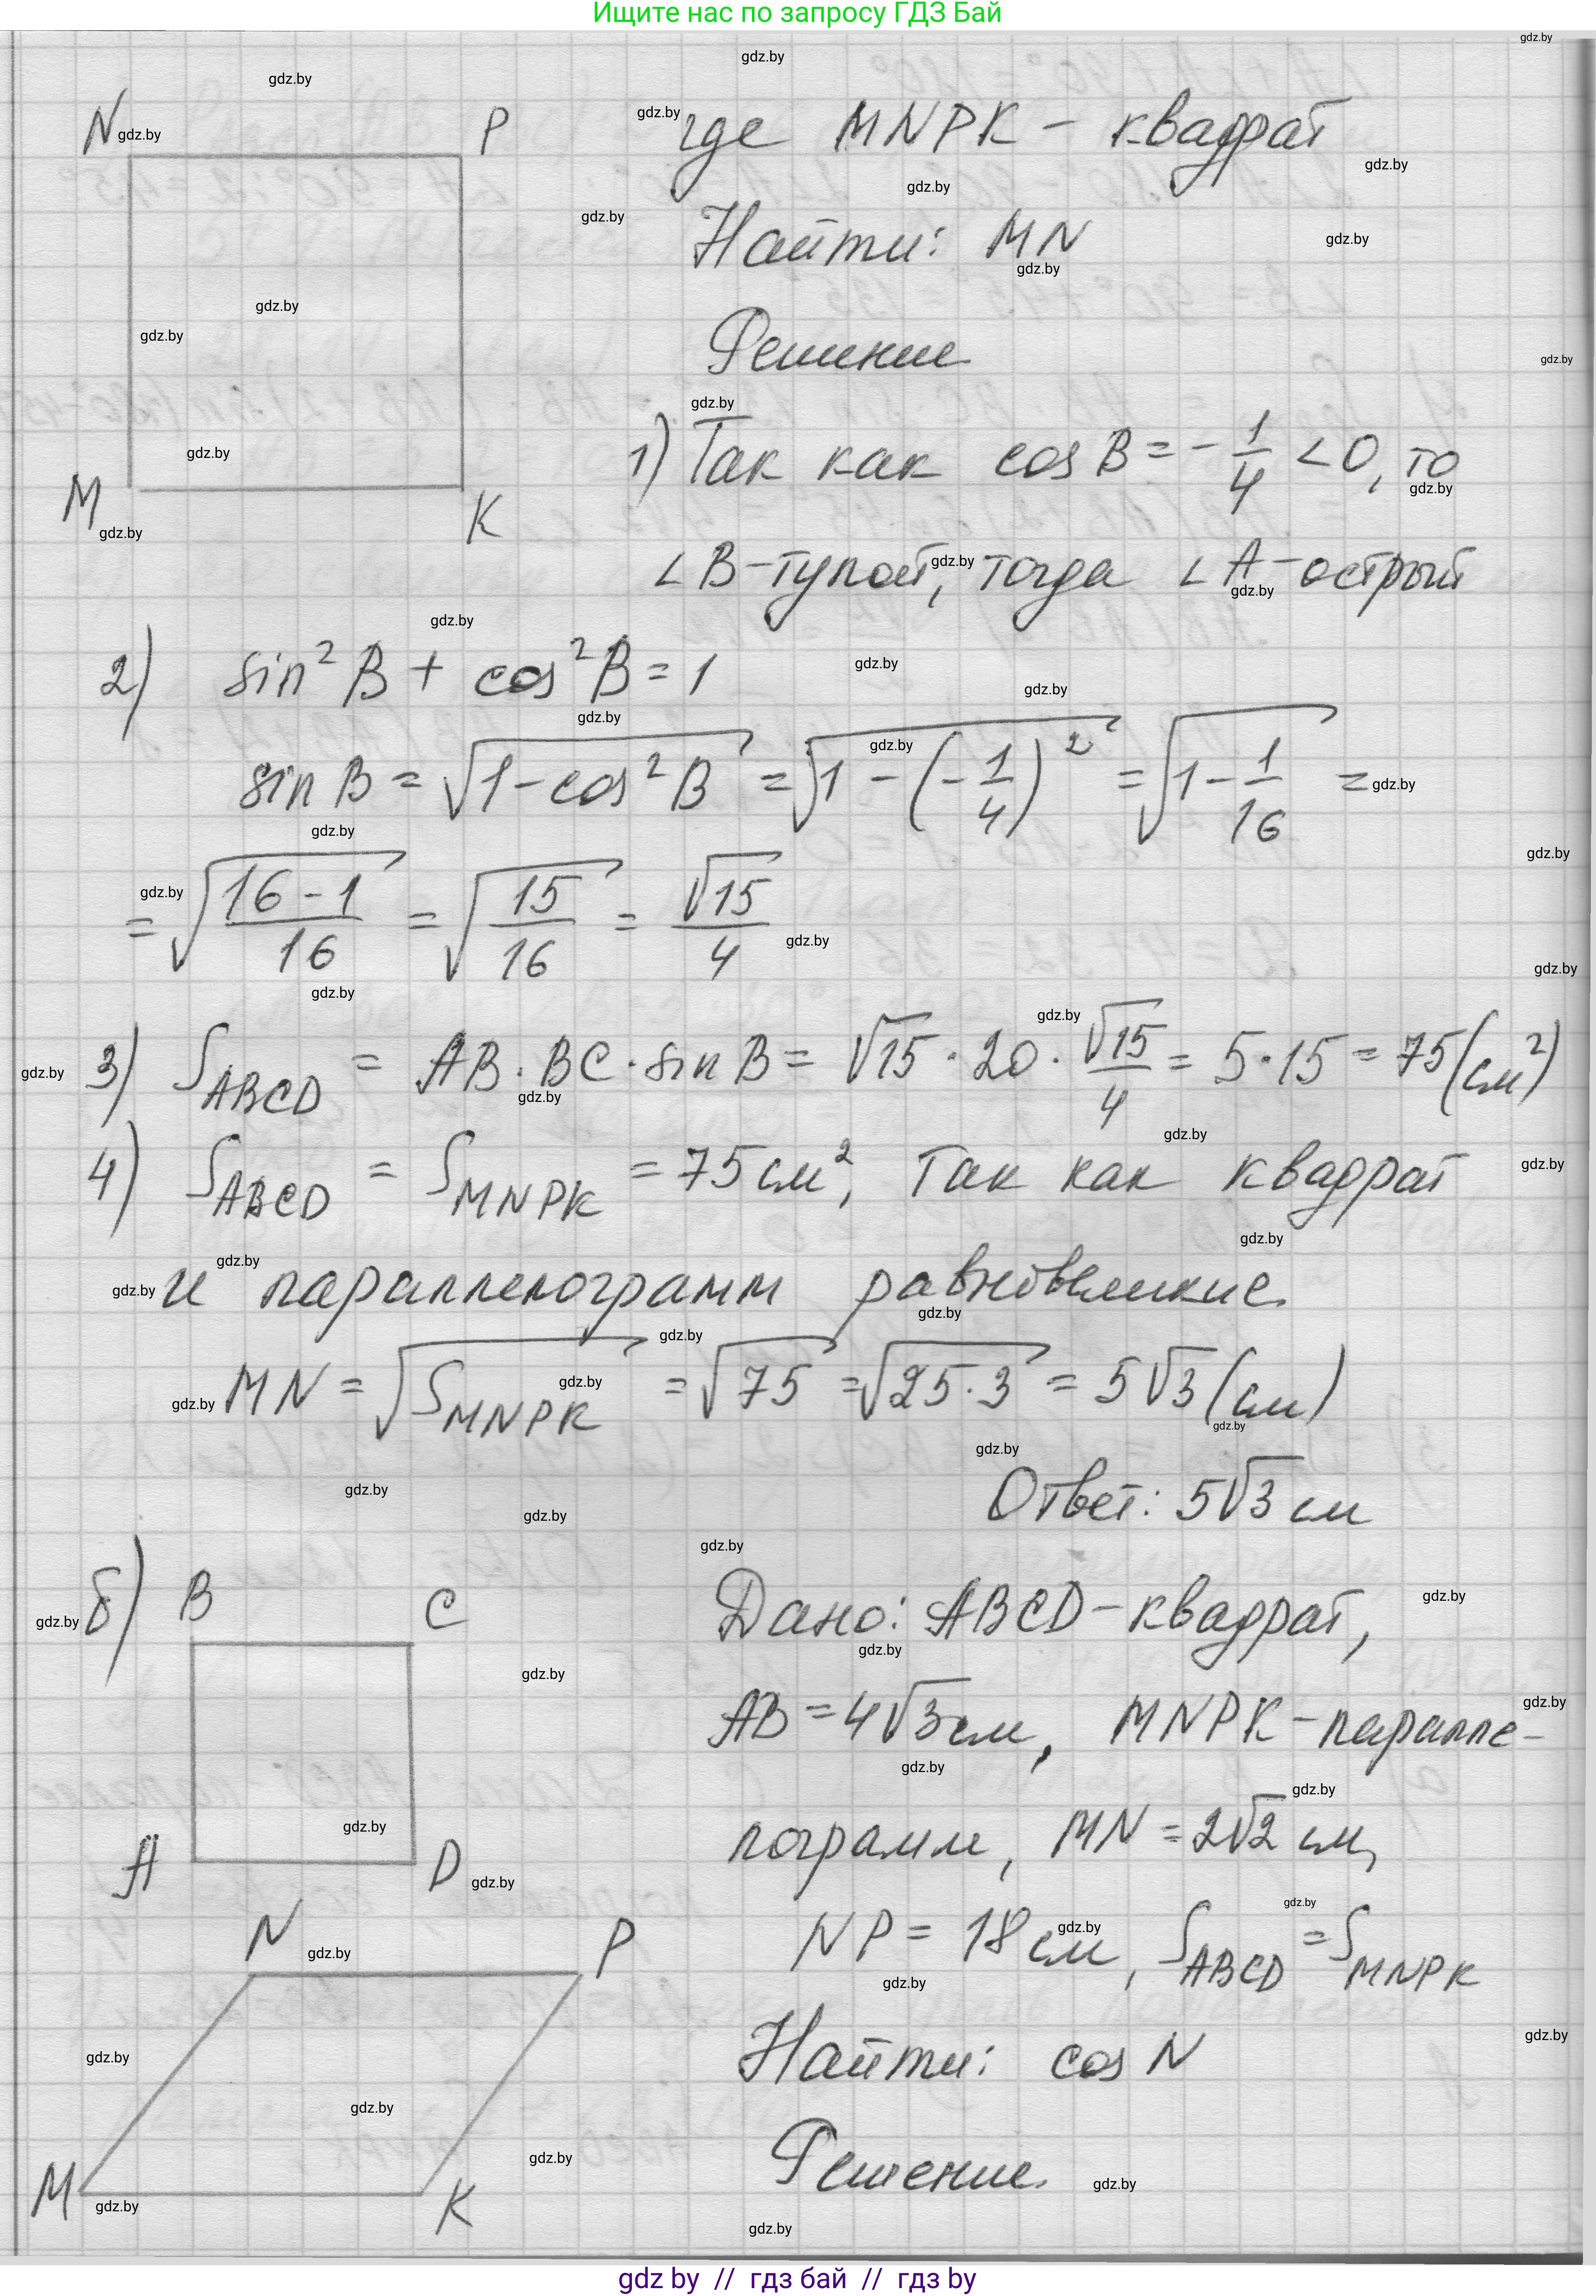 Ищите нас по запросу ГДЗ Бай
N P где MNPK - квадрат
Найти: MN
Решение
M K
1) Так как cos B = - 1/4 < 0, то
∠B - тупой, тогда ∠A - острый
2) sin² B + cos² B = 1
sin B = √(1 - cos² B) = √(1 - (-1/4)²) = √(1 - 1/16) =
= √((16 - 1)/16) = √(15/16) = √15/4
3) S_ABCD = AB · BC · sin B = √15 · 20 · √15/4 = 5 · 15 = 75 (см²)
4) S_ABCD = S_MNPK = 75 см², так как квадрат
и параллелограмм равновеликие
MN = √S_MNPK = √75 = √(25 · 3) = 5√3 (см)
Ответ: 5√3 см
б) B C Дано: ABCD - квадрат,
AB = 4√3 см, MNPK - паралле-
лограмм, MN = 2√2 см,
A D
N P NP = 18 см, S_ABCD = S_MNPK
Найти: cos N
Решение.
M K
gdz.by
gdz by // гдз бай // гдз by